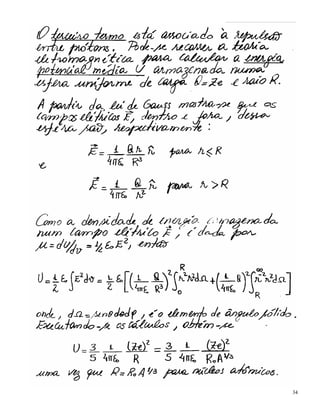 O terceiro termo está associado à repulsão
entre prótons. Pode-se recorrer à teoria
eletromagnética para calcular a energia
potencial média U armazenada numa
esfera uniforme de carga Q=Ze e raio R.
A partir da lei de Gauss mostra-se que os
campos elétricos E⃗, dentro e fora, dessa
esfera são, respectivamente:
E⃗ = 1/4πε₀ Qr/R³ r̂ para r≤R
e
E⃗ = 1/4πε₀ Q/r² r̂ para r>R
Como a densidade de energia armazenada
num campo elétrico E⃗, é dada por
u = dU/dv = ½ε₀E², então
U = 1/2 ε₀∫E²dv = 1/2 ε₀[(1/4πε₀ Q/R³)²∫₀ᴿ r²r²drdΩ + (1/4πε₀ Q)²∫ᴿ^∞ r⁻⁴r²drdΩ]
onde, dΩ = senθdθdφ, é o elemento de ângulo sólido.
Executando-se os cálculos, obtém-se
U = 3/5 1/4πε₀ (Ze)²/R = 3/5 1/4πε₀ (Ze)²/R₀A^1/3
uma vez que R = R₀A^1/3 para núcleos atômicos.
54